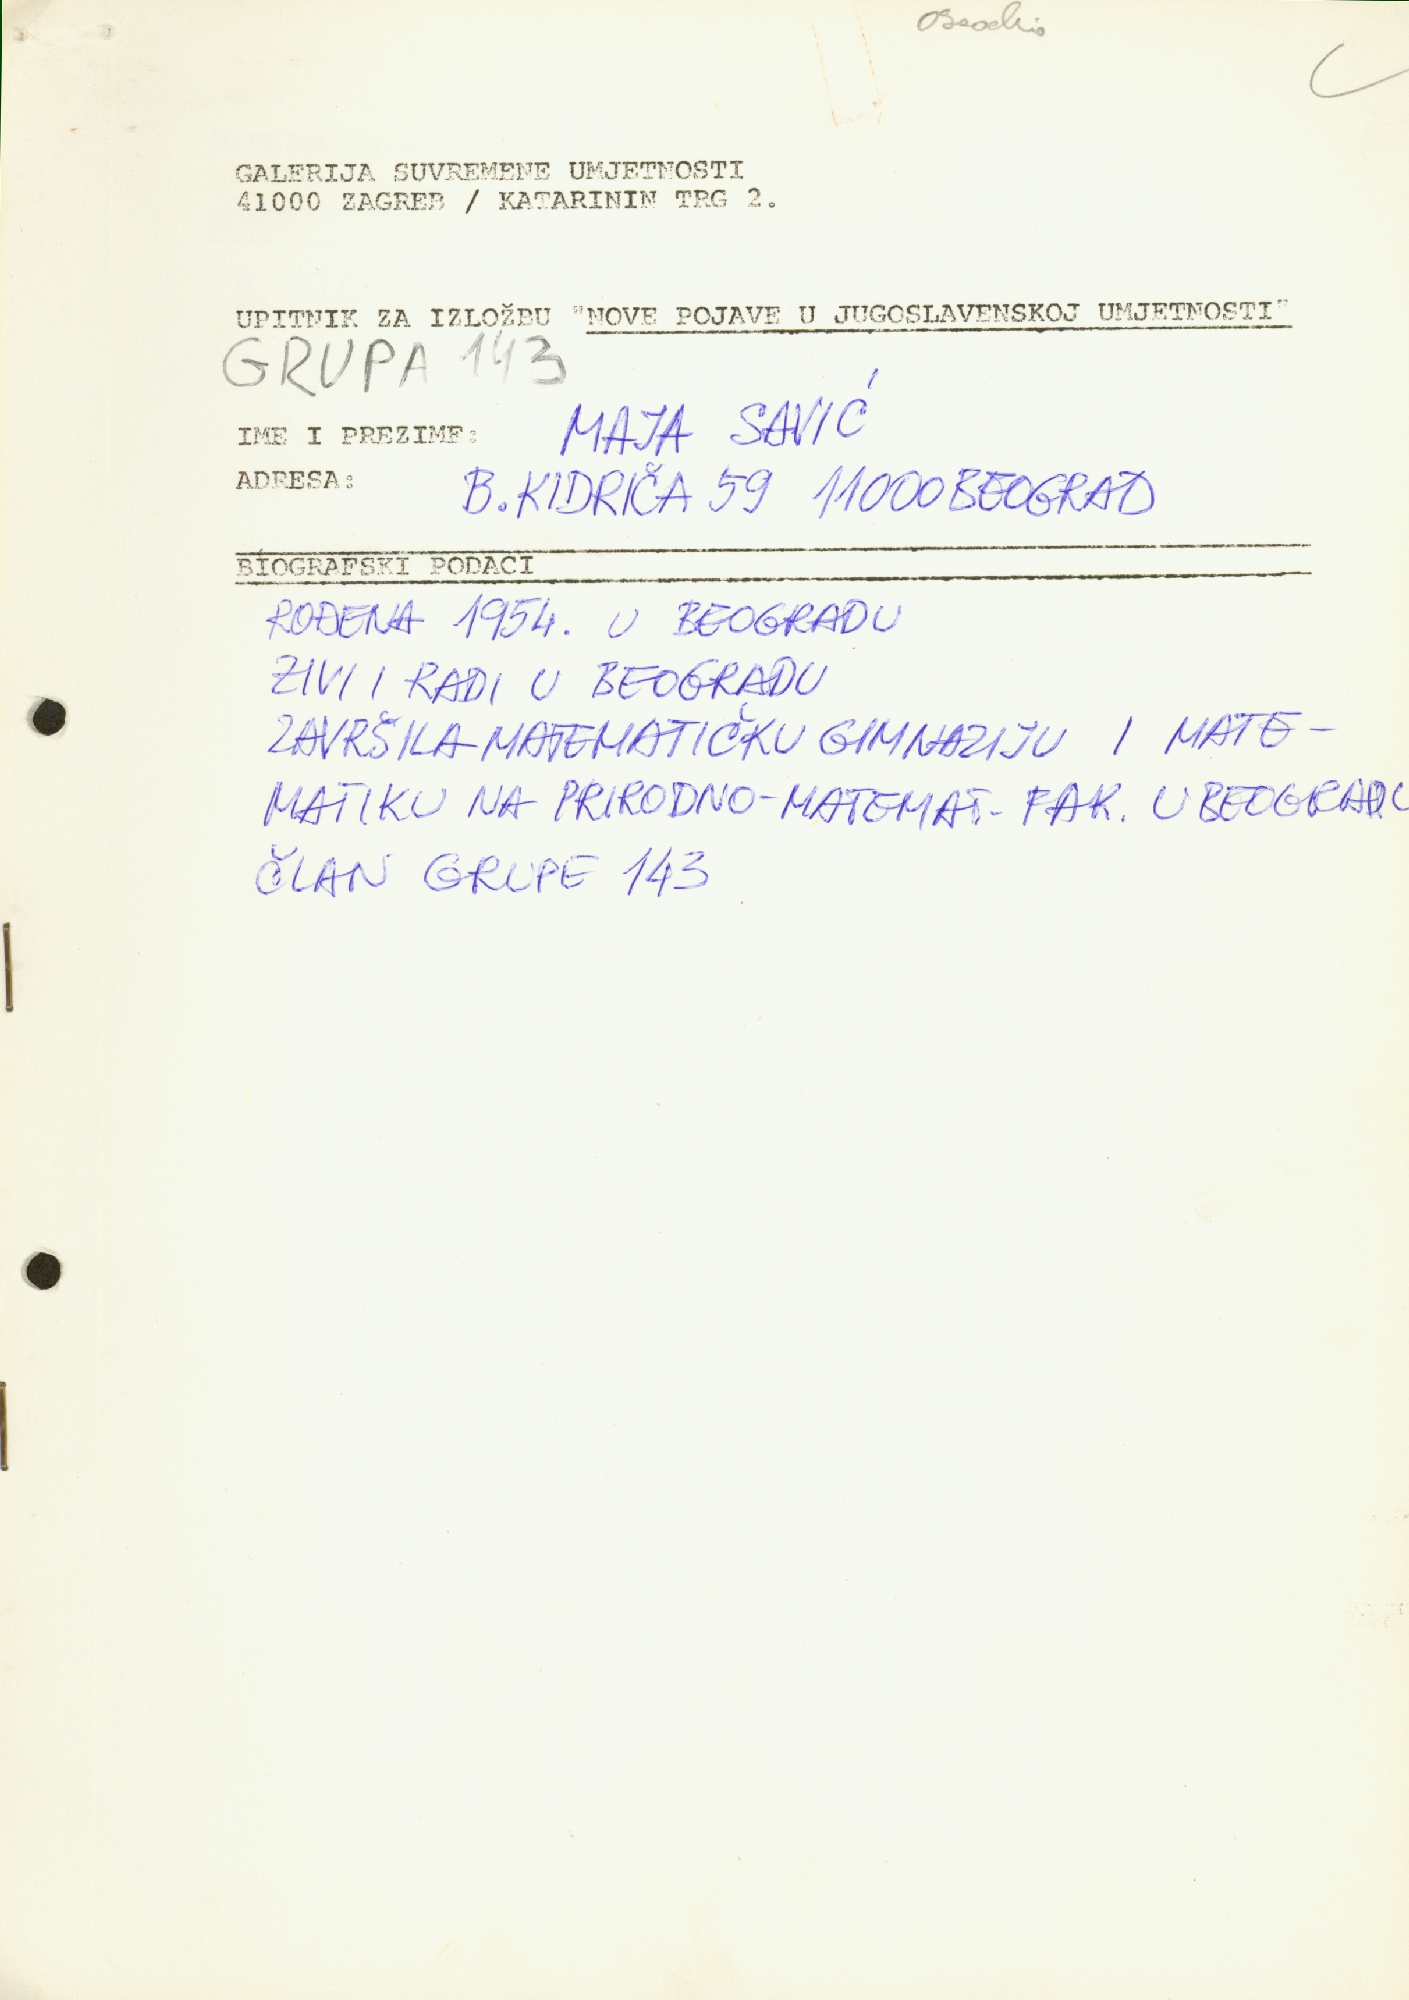 GALERIJA SUVREMENE UMJETNOSTI
41000 ZAGREB / KATARININ TRG 2.
UPITNIK ZA IZLOŽBU "NOVE POJAVE U JUGOSLAVENSKOJ UMJETNOSTI"
GRUPA 143
IME I PREZIME: MAJA SAVIĆ
ADRESA: B. KIDRIČA 59 11000 BEOGRAD
BIOGRAFSKI PODACI
ROĐENA 1954. U BEOGRADU
ZIVI I RADI U BEOGRADU
ZAVRŠILA MATEMATIČKU GIMNAZIJU I MATE-
MATIKU NA PRIRODNO-MATEMAT. FAK. U BEOGRADU
ČLAN GRUPE 143